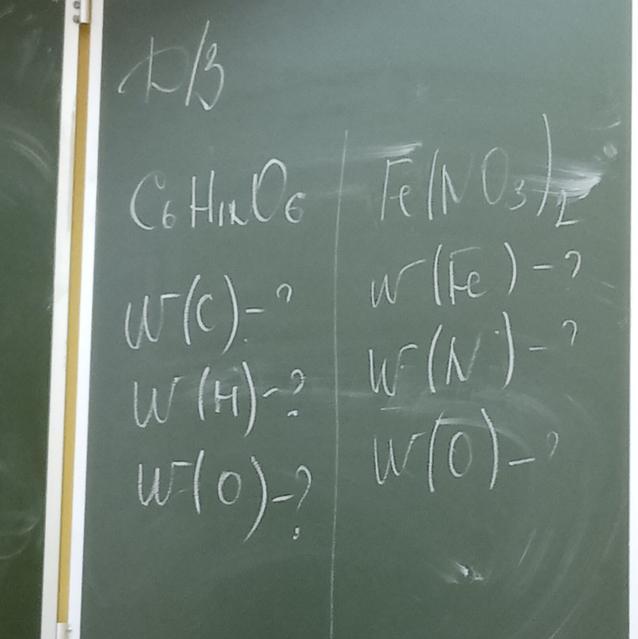 Д/З
C₆H₁₂O₆
W(C)-?
W(H)-?
W(O)-?
Fe(NO₃)₂
W(Fe)-?
W(N)-?
W(O)-?